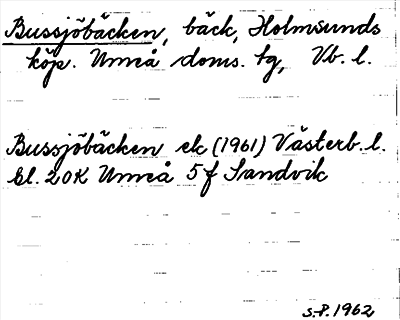 Bussjöbäcken, bäck, Holmsunds
köp. Umeå doms. tg, Vb. l.
Bussjöbäcken ek (1961) Västerb. l.
bl. 20K Umeå 5f Sandvik
S.P. 1962